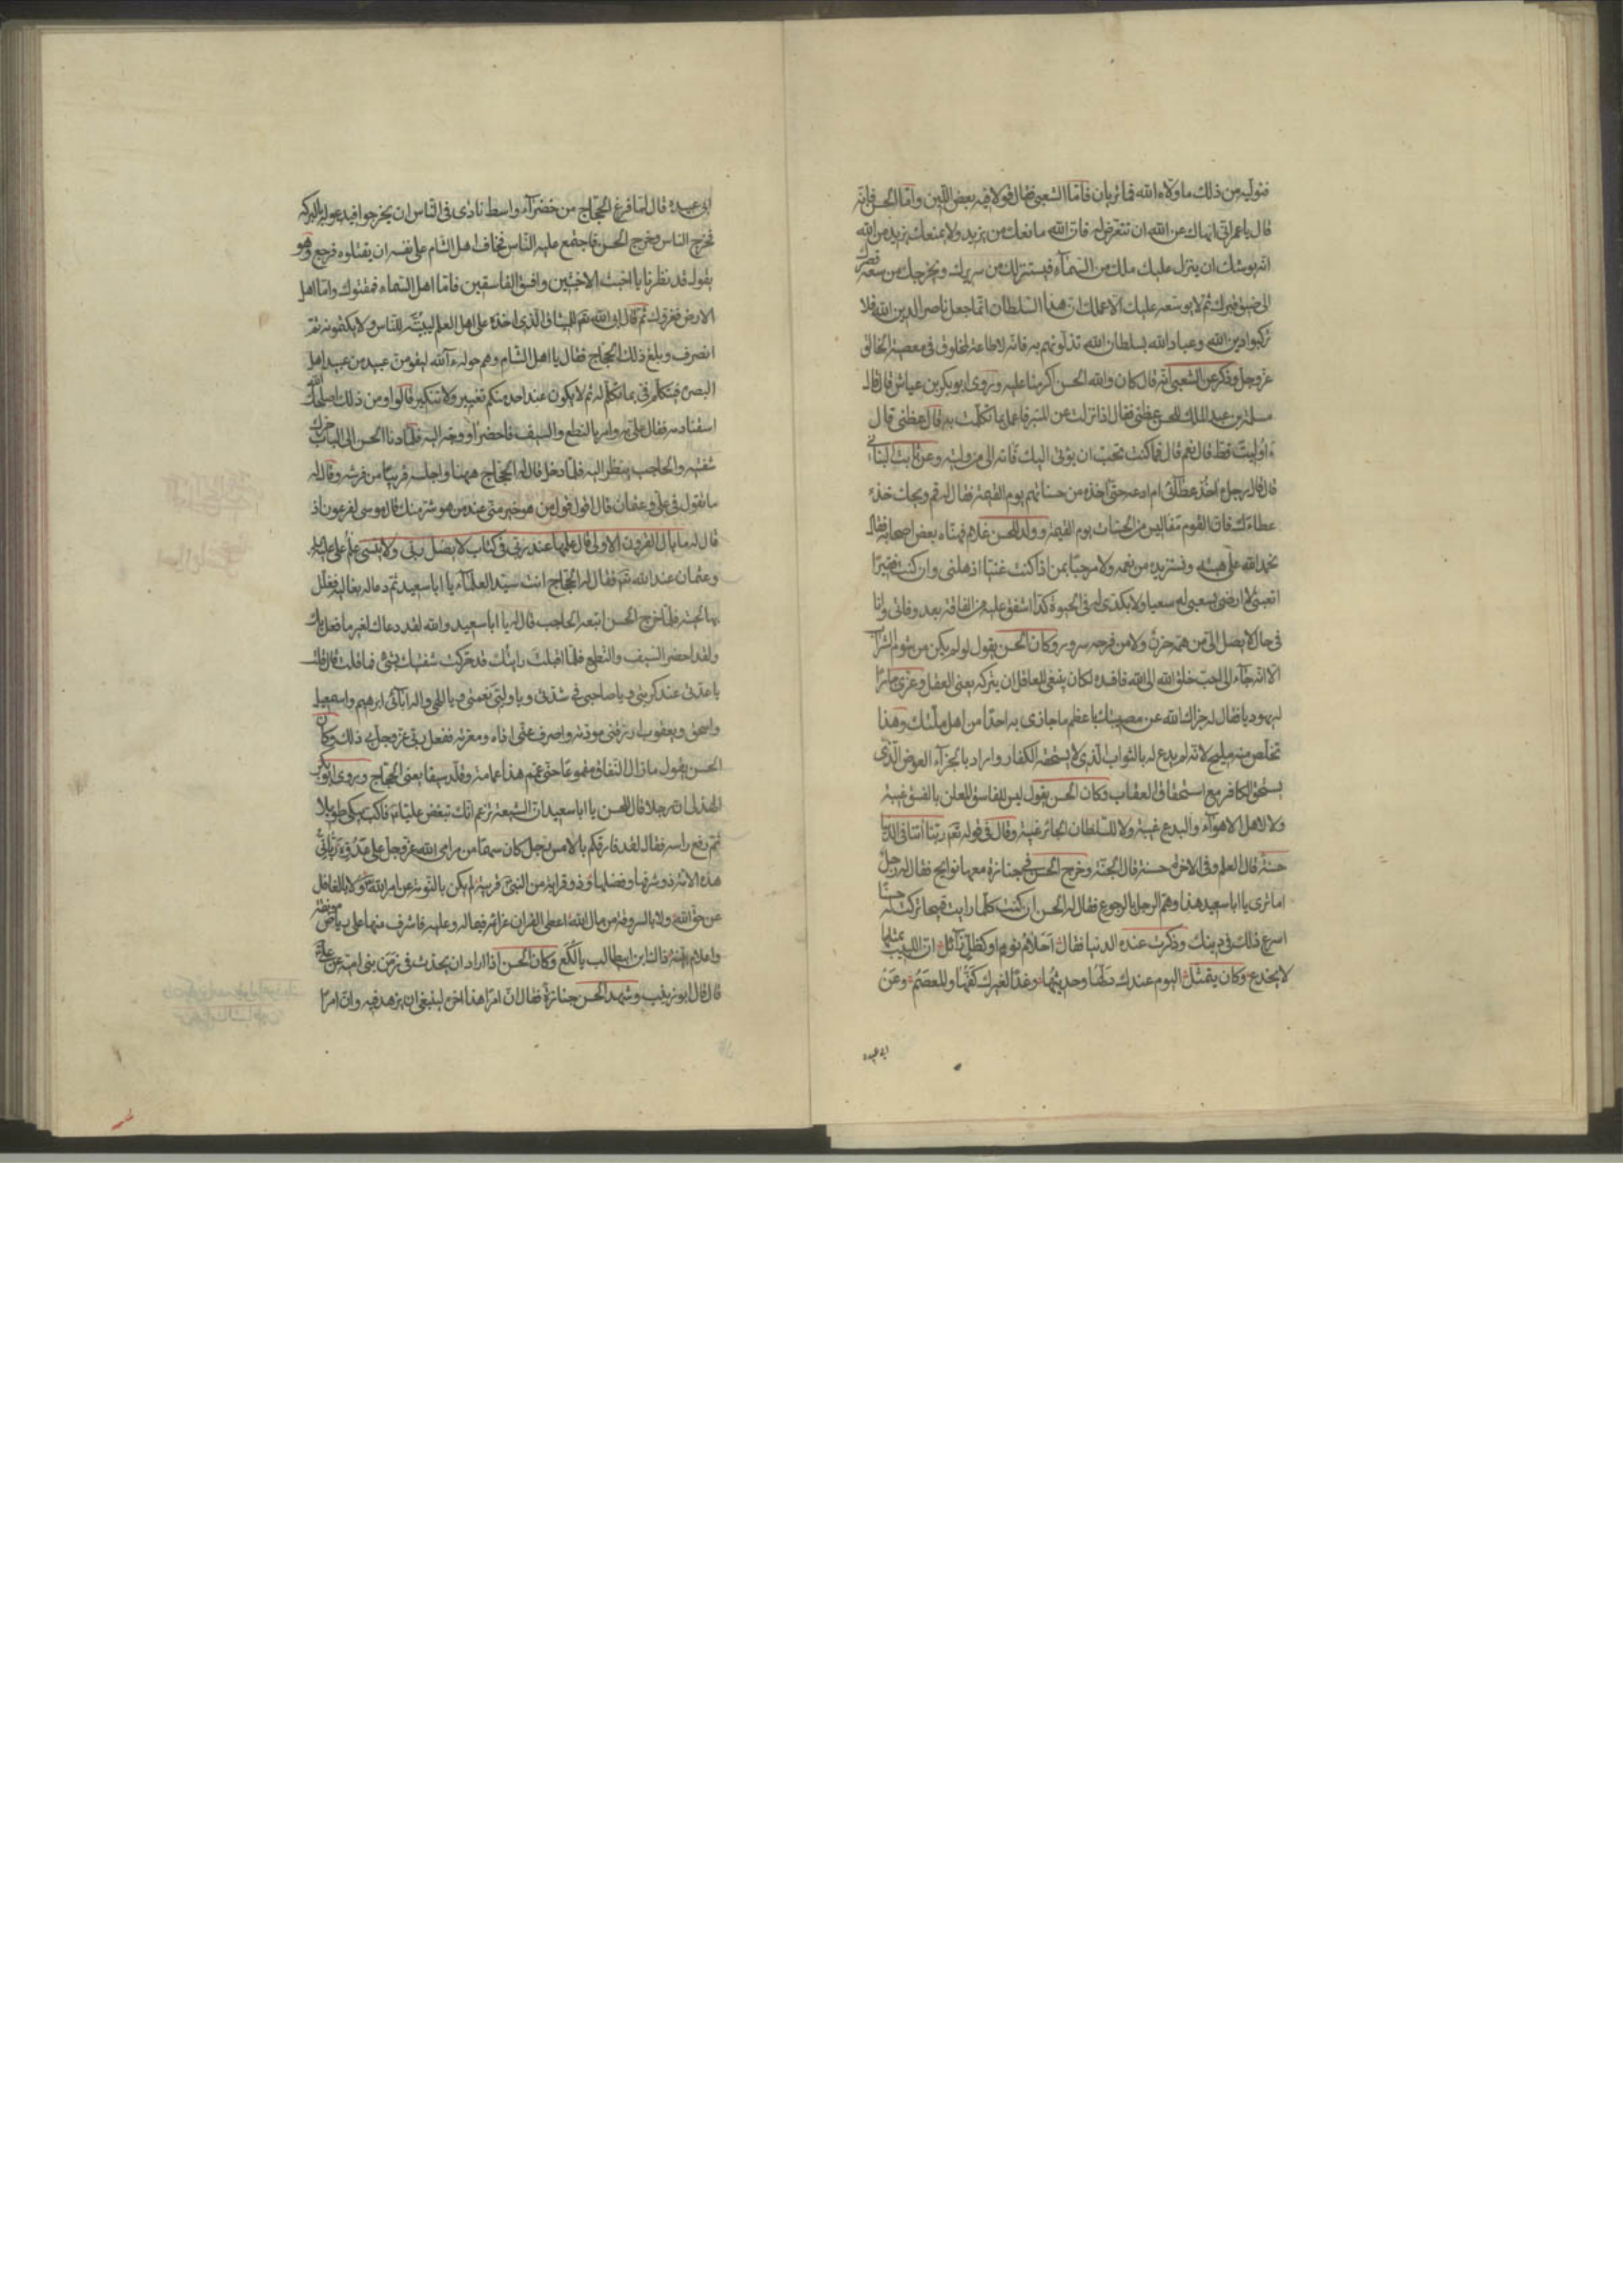 فنوليه من ذلك ما ولاه الله فما تريان فاما الشعبي فقال قولا فيه بعض اللين واما الحسن فانه
قال يا عمر اني انهاك عن الله ان تتعرض له فان الله مانعك من يزيد ولا يمنعك يزيد من الله
انه يوشك ان ينزل عليك ملك من السمآء فيستنزلك من سريرك ويخرجك من سعة قصرك
الى ضيق قبرك ثم لا يوسعه عليك الا عملك ان هذا السلطان انما جعل ناصرا لدين الله فلا
تركبوا دين الله وعباد الله بسلطان الله تذلونهم به فانه لا طاعة لمخلوق في معصية الخالق
عز وجل وذكر عن الشعبي انه قال كان والله الحسن اكرمنا عليه وروى ابو بكر بن عياش قال قال
مسلمة بن عبد الملك للحسن عظني فقال اذا نزلت عن المنبر فاعمل بما تكلمت به قال عظني قال
اوليت قط قال نعم قال فما كنت تحب ان يؤتى اليك فاته الى من وليته وعن ثابت البناني
قال قال رجل اخذ عطائي ام ادعه حتى آخذه من حسناتهم يوم القيمة فقال له قم ويحك خذ
عطاءك فان القوم مفاليس من الحسنات يوم القيمة وولد للحسن غلام فهناه بعض اصحابه فقال
نحمد الله على هبته ونستزيده من نعمه ولا مرحبا بمن اذا كنت غنيا اذهلني وان كنت فقيرا
اتعبني لا ارضى بسعيي له سعيا ولا بكدي له في الحيوة كدا اشفق عليه من الفاقة بعد وفاتي وانا
في حال لا يصل الي من همه حزن ولا من فرحه سرور وكان الحسن يقول لو لم يكن من شوم الشراب
الا انه جآء الى احب خلق الله الى الله فافسده لكان ينبغي للعاقل ان يتركه يعني العقل وعزى جارا
له يهوديا فقال له جزاك الله عن مصيبتك باعظم ما جازى به احدا من اهل ملتك وهذا
تخلص منه مليح لانه لم يدع له بالثواب الذي لا يستحقه الكفار واراد بالجزآء العوض الذي
يستحق الكافر مع استحقاق العقاب وكان الحسن يقول ليس للفاسق المعلن بالفسق غيبة
ولا لاهل الاهوآء والبدع غيبة ولا للسلطان الجائر غيبة وقال في قوله تعم ربنا آتنا في الدنيا
حسنة قال العلم وفي الاخرة حسنة قال الجنة وخرج الحسن في جنازة معها نوايح فقال له رجل
اما ترى يا ابا سعيد هذا وهم الرجل بالرجوع فقال له الحسن ان كنت كلما رايت قبيحا تركت له حسنا
اسرع ذلك في دينك وذكرت عنده الدنيا فقال احلام نوم او كظل زآئل ان اللبيب بمثلها
لا يخدع وكان يتمثل اليوم عندك دلها وحديثها وغدا لغيرك كفها والمعصم وعن
ابي عبيده
ابي عبيدة قال لما فرغ الحجاج من خضرآء واسط نادى في الناس ان يخرجوا فيدعوا له بالبركة
فخرج الناس وخرج الحسن فاجتمع عليه الناس فخاف اهل الشام على نفسه ان يقتلوه فرجع وهو
يقول قد نظرنا يا اخبث الاخبثين وافسق الفاسقين فاما اهل السماء فمقتوك واما اهل
الارض فغروك ثم قال ابى الله تعم للميثاق الذي اخذه على اهل العلم ليبيننه للناس ولا يكتمونه ثم
انصرف وبلغ ذلك الحجاج فقال يا اهل الشام وهم حوله ءآلله ليقومن عبيد من عبيد اهل
البصرة فيتكلم في بما تكلم له ثم لا يكون عند احد منكم تغيير ولا تنكير قالوا ومن ذلك اصلحك الله
اسقنا دمه فقال علي به وامر بالنطع والسيف فاحضرا ووجه اليه فلما دنا الحسن الى الباب حرك
شفتيه والحاجب ينظر اليه فلما دخل قال له الحجاج ههنا واجلسه قريبا من فرشه وقال له
ما تقول في علي وعثمان قال اقول قول من هو خير مني عند من هو شر منك قال موسى لفرعون اذ
قال له ما بال القرون الاولى قال علمها عند ربي في كتاب لا يضل ربي ولا ينسى علم علي
وعثمان عند الله تعم فقال له الحجاج انت سيد العلمآء يا ابا سعيد ثم دعا له بغالية فغلل
بها لحيته فلما خرج الحسن اتبعه الحاجب فقال له يا ابا سعيد والله لقد دعاك لغير ما فعل بك
ولقد احضر السيف والنطع فلما اقبلت رايتك قد حركت شفتيك بشئ فما قلت قال قلت
يا عدتي عند كربتي ويا صاحبي في شدتي ويا وليي نعمتي ويا الهي واله آبآئي ابرهيم واسمعيل
واسحق ويعقوب ارزقني مودته واصرف عني اذاه ومعرته ففعل ربي عز وجل ذلك وكان
الحسن يقول ما زال النفاق مقموعا حتى عمم هذا عمامة وقلد سيفا يعني الحجاج وروى ابو بكر
الهذلي ان رجلا قال للحسن يا ابا سعيد ان الشيعة تزعم انك تبغض عليا فاكب يبكي طويلا
ثم رفع راسه فقال لقد فارقكم بالامس رجل كان سهما من مرامي الله عز وجل على عدوه رباني
هذه الامة ذو شرفها وفضلها وذو قرابة من النبي قريبة لم يكن بالنومة عن امر الله ولا بالغافل
عن حق الله ولا بالسروقة من مال الله اعطى القران عزائمه فيما له وعليه فاشرف منها على رياض مونقة
واعلام بينة ذلك ابن ابي طالب يا لكع وكان الحسن اذا اراد ان يحدث في زمن بني امية عن علي
قال قال ابو زينب وشهد الحسن جنازة فقال ان امرا هذا اخره لينبغي ان يزهد فيه وان امرا